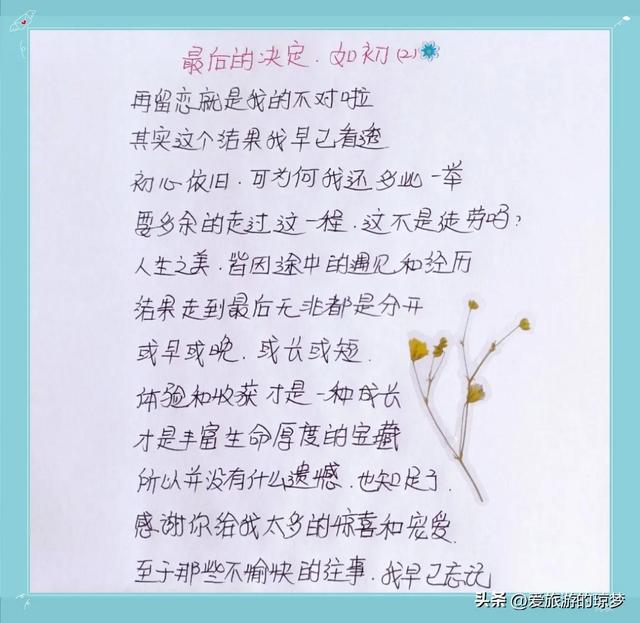 最后的决定.如初(2)
再留恋就是我的不对啦
其实这个结果我早已看透
初心依旧.可为何我还多此一举
要多余的走过这一程.这不是徒劳吗?
人生之美.皆因途中的遇见和经历
结果走到最后无非都是分开
或早或晚.或长或短.
体验和收获才是一种成长
才是丰富生命厚度的宝藏
所以并没有什么遗憾.也知足了.
感谢你给我太多的惊喜和宠爱.
至于那些不愉快的往事.我早已忘记
头条 @爱旅游的琼梦